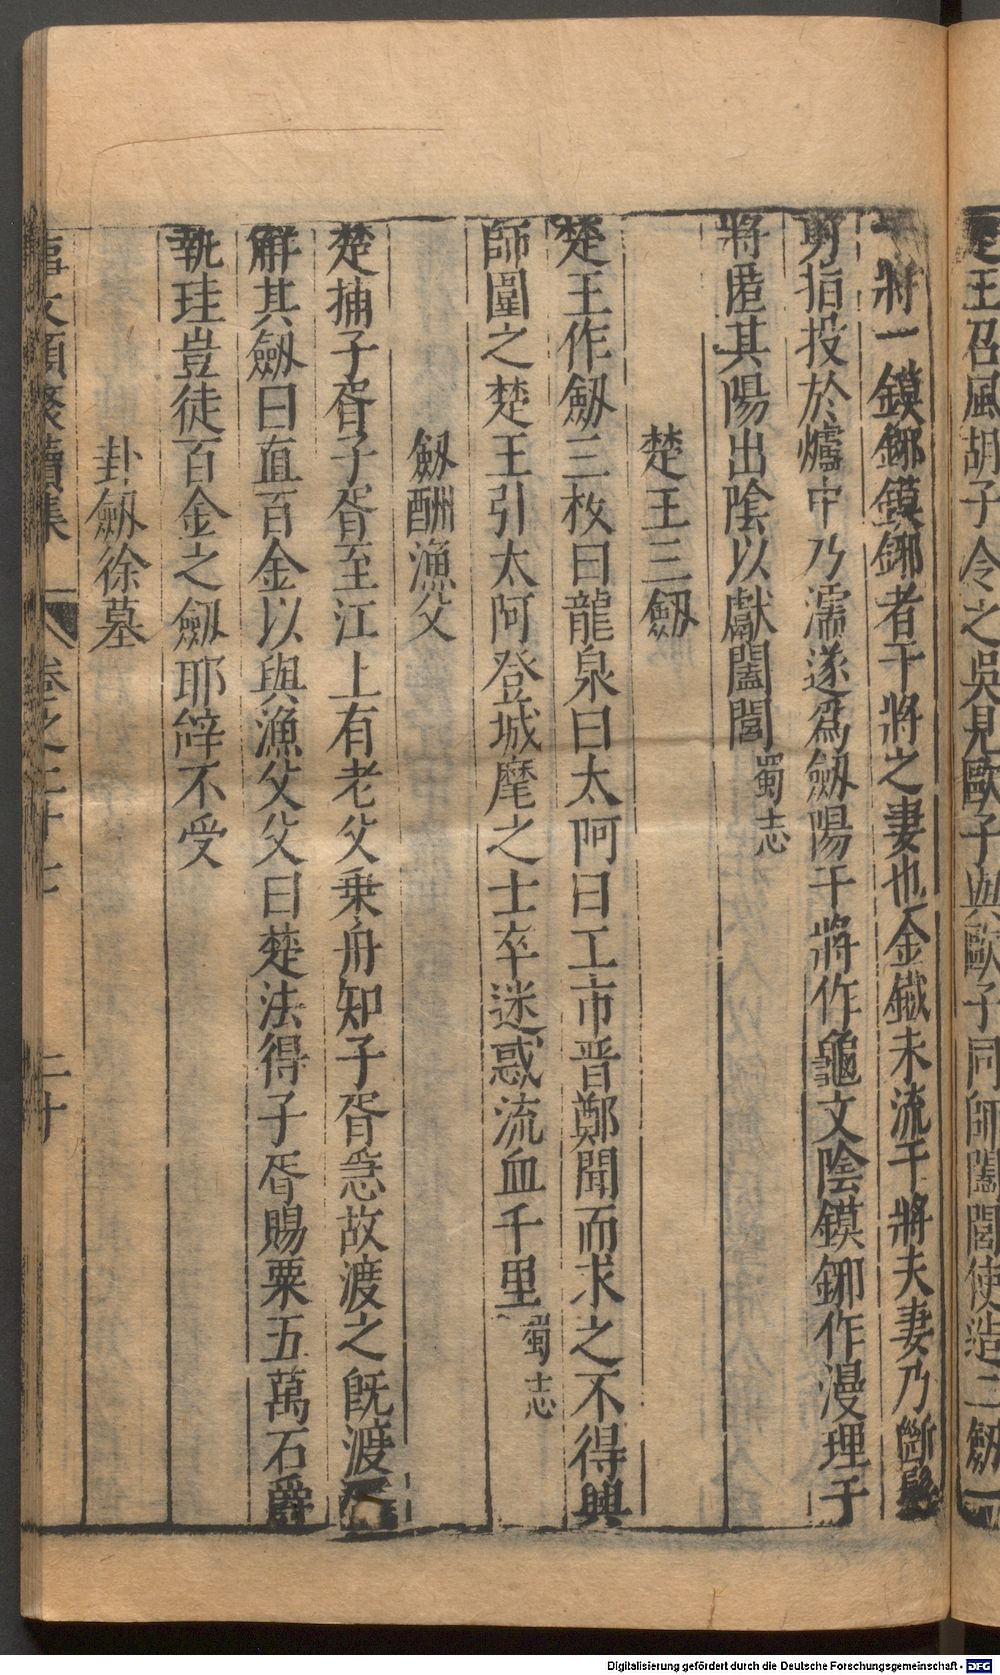 楚王召風胡子令之吳見歐子與歐子同師闔閭使造二劒一
將一鏌鋣鏌鋣者干將之妻也金鐵未流干將夫妻乃斷髮
剪指投於爐中乃濡遂爲劒陽干將作龜文陰鏌鋣作漫理干
將匿其陽出陰以獻闔閭蜀志
楚王三劒
楚王作劒三枚曰龍泉曰太阿曰工市晋鄭聞而求之不得興
師圍之楚王引太阿登城麾之士卒迷惑流血千里蜀志
劒酬漁父
楚捕子胥子胥至江上有老父乗舟知子胥急故渡之旣渡
解其劒曰直百金以與漁父父曰楚法得子胥賜粟五萬石爵
執珪豈徒百金之劒耶辭不受
卦劒徐墓
事文類聚續集 卷之二十七 二十
Digitalisierung gefördert durch die Deutsche Forschungsgemeinschaft - DFG